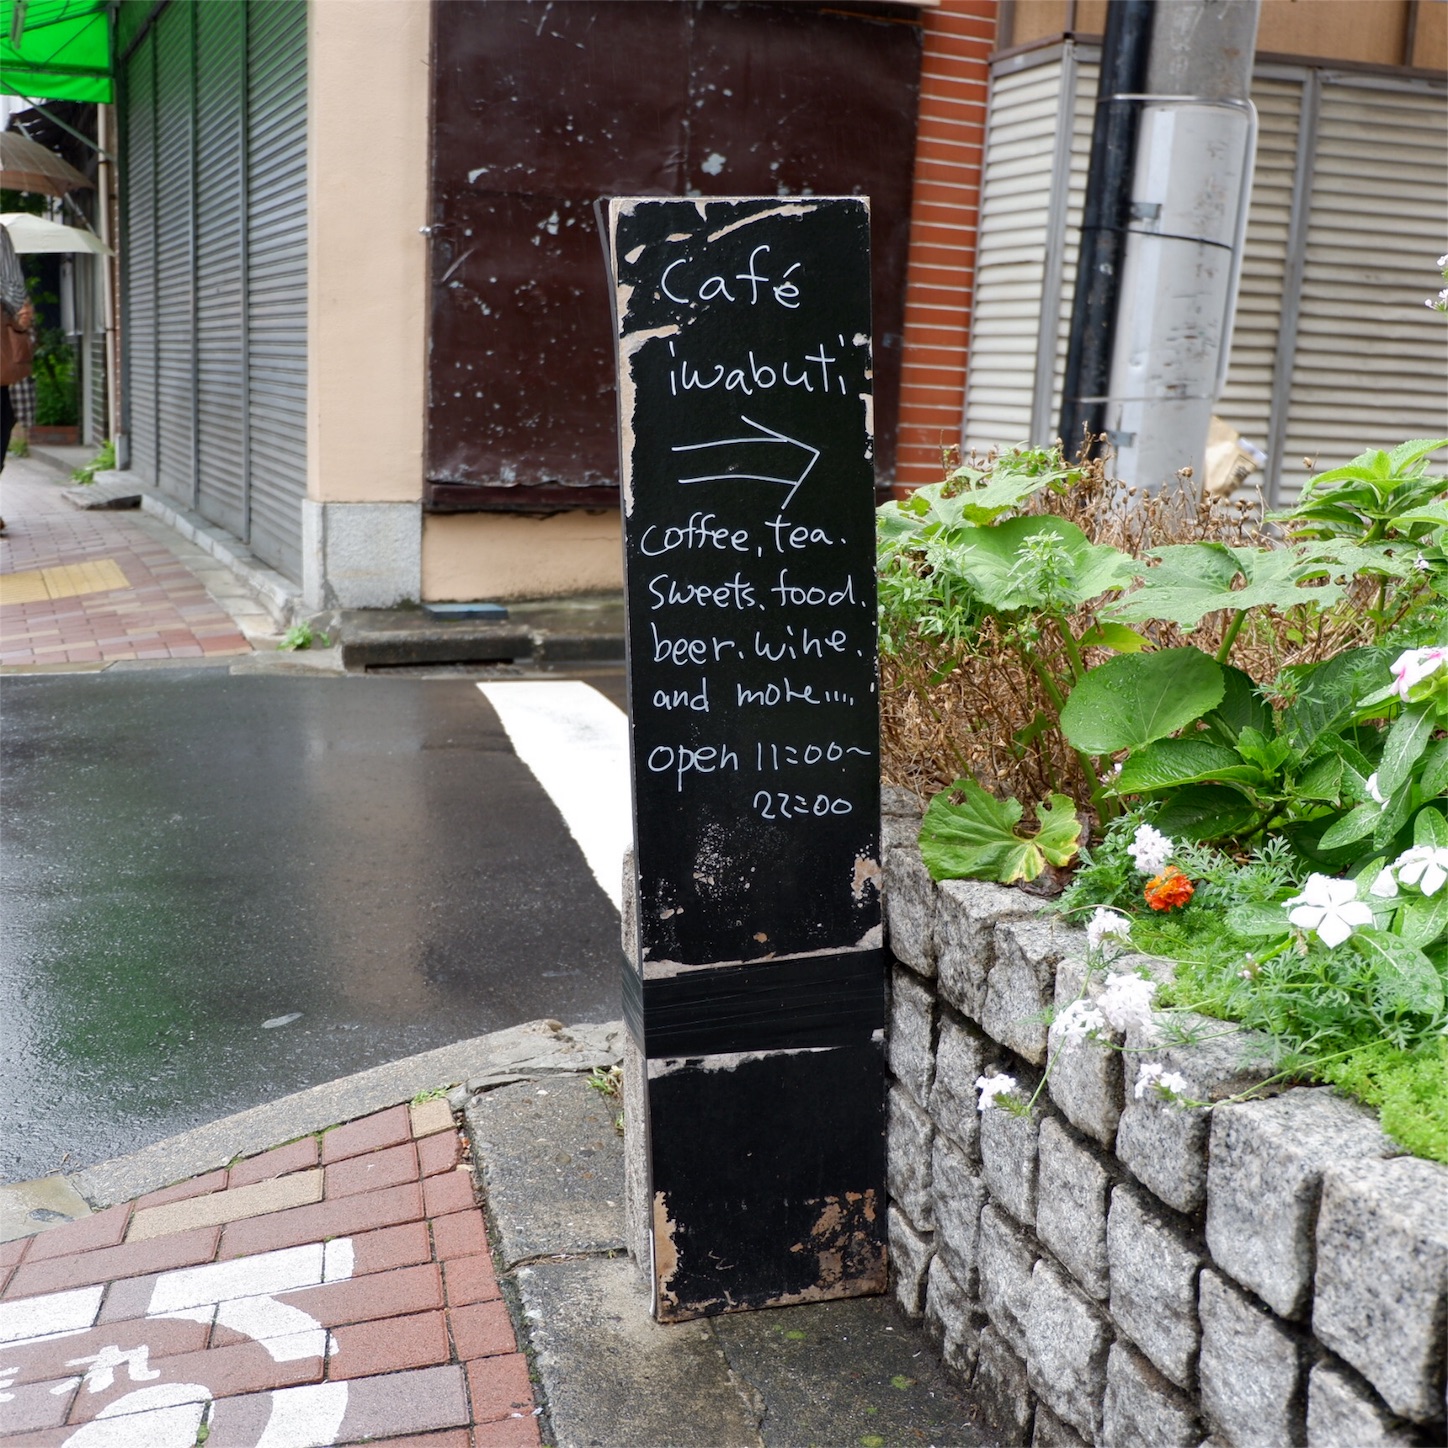 Café
iwabuti
coffee, tea.
sweets. food.
beer. wine.
and more....
open 11:00~
22:00
まれ